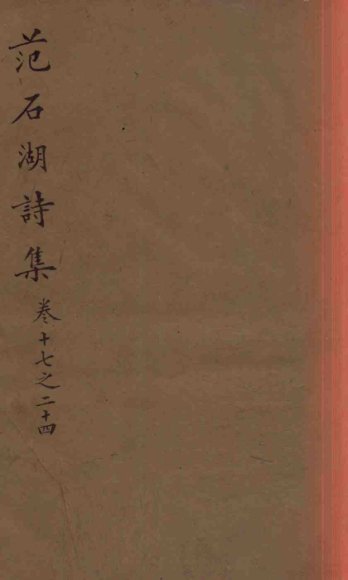 范石湖詩集卷十七之二十四